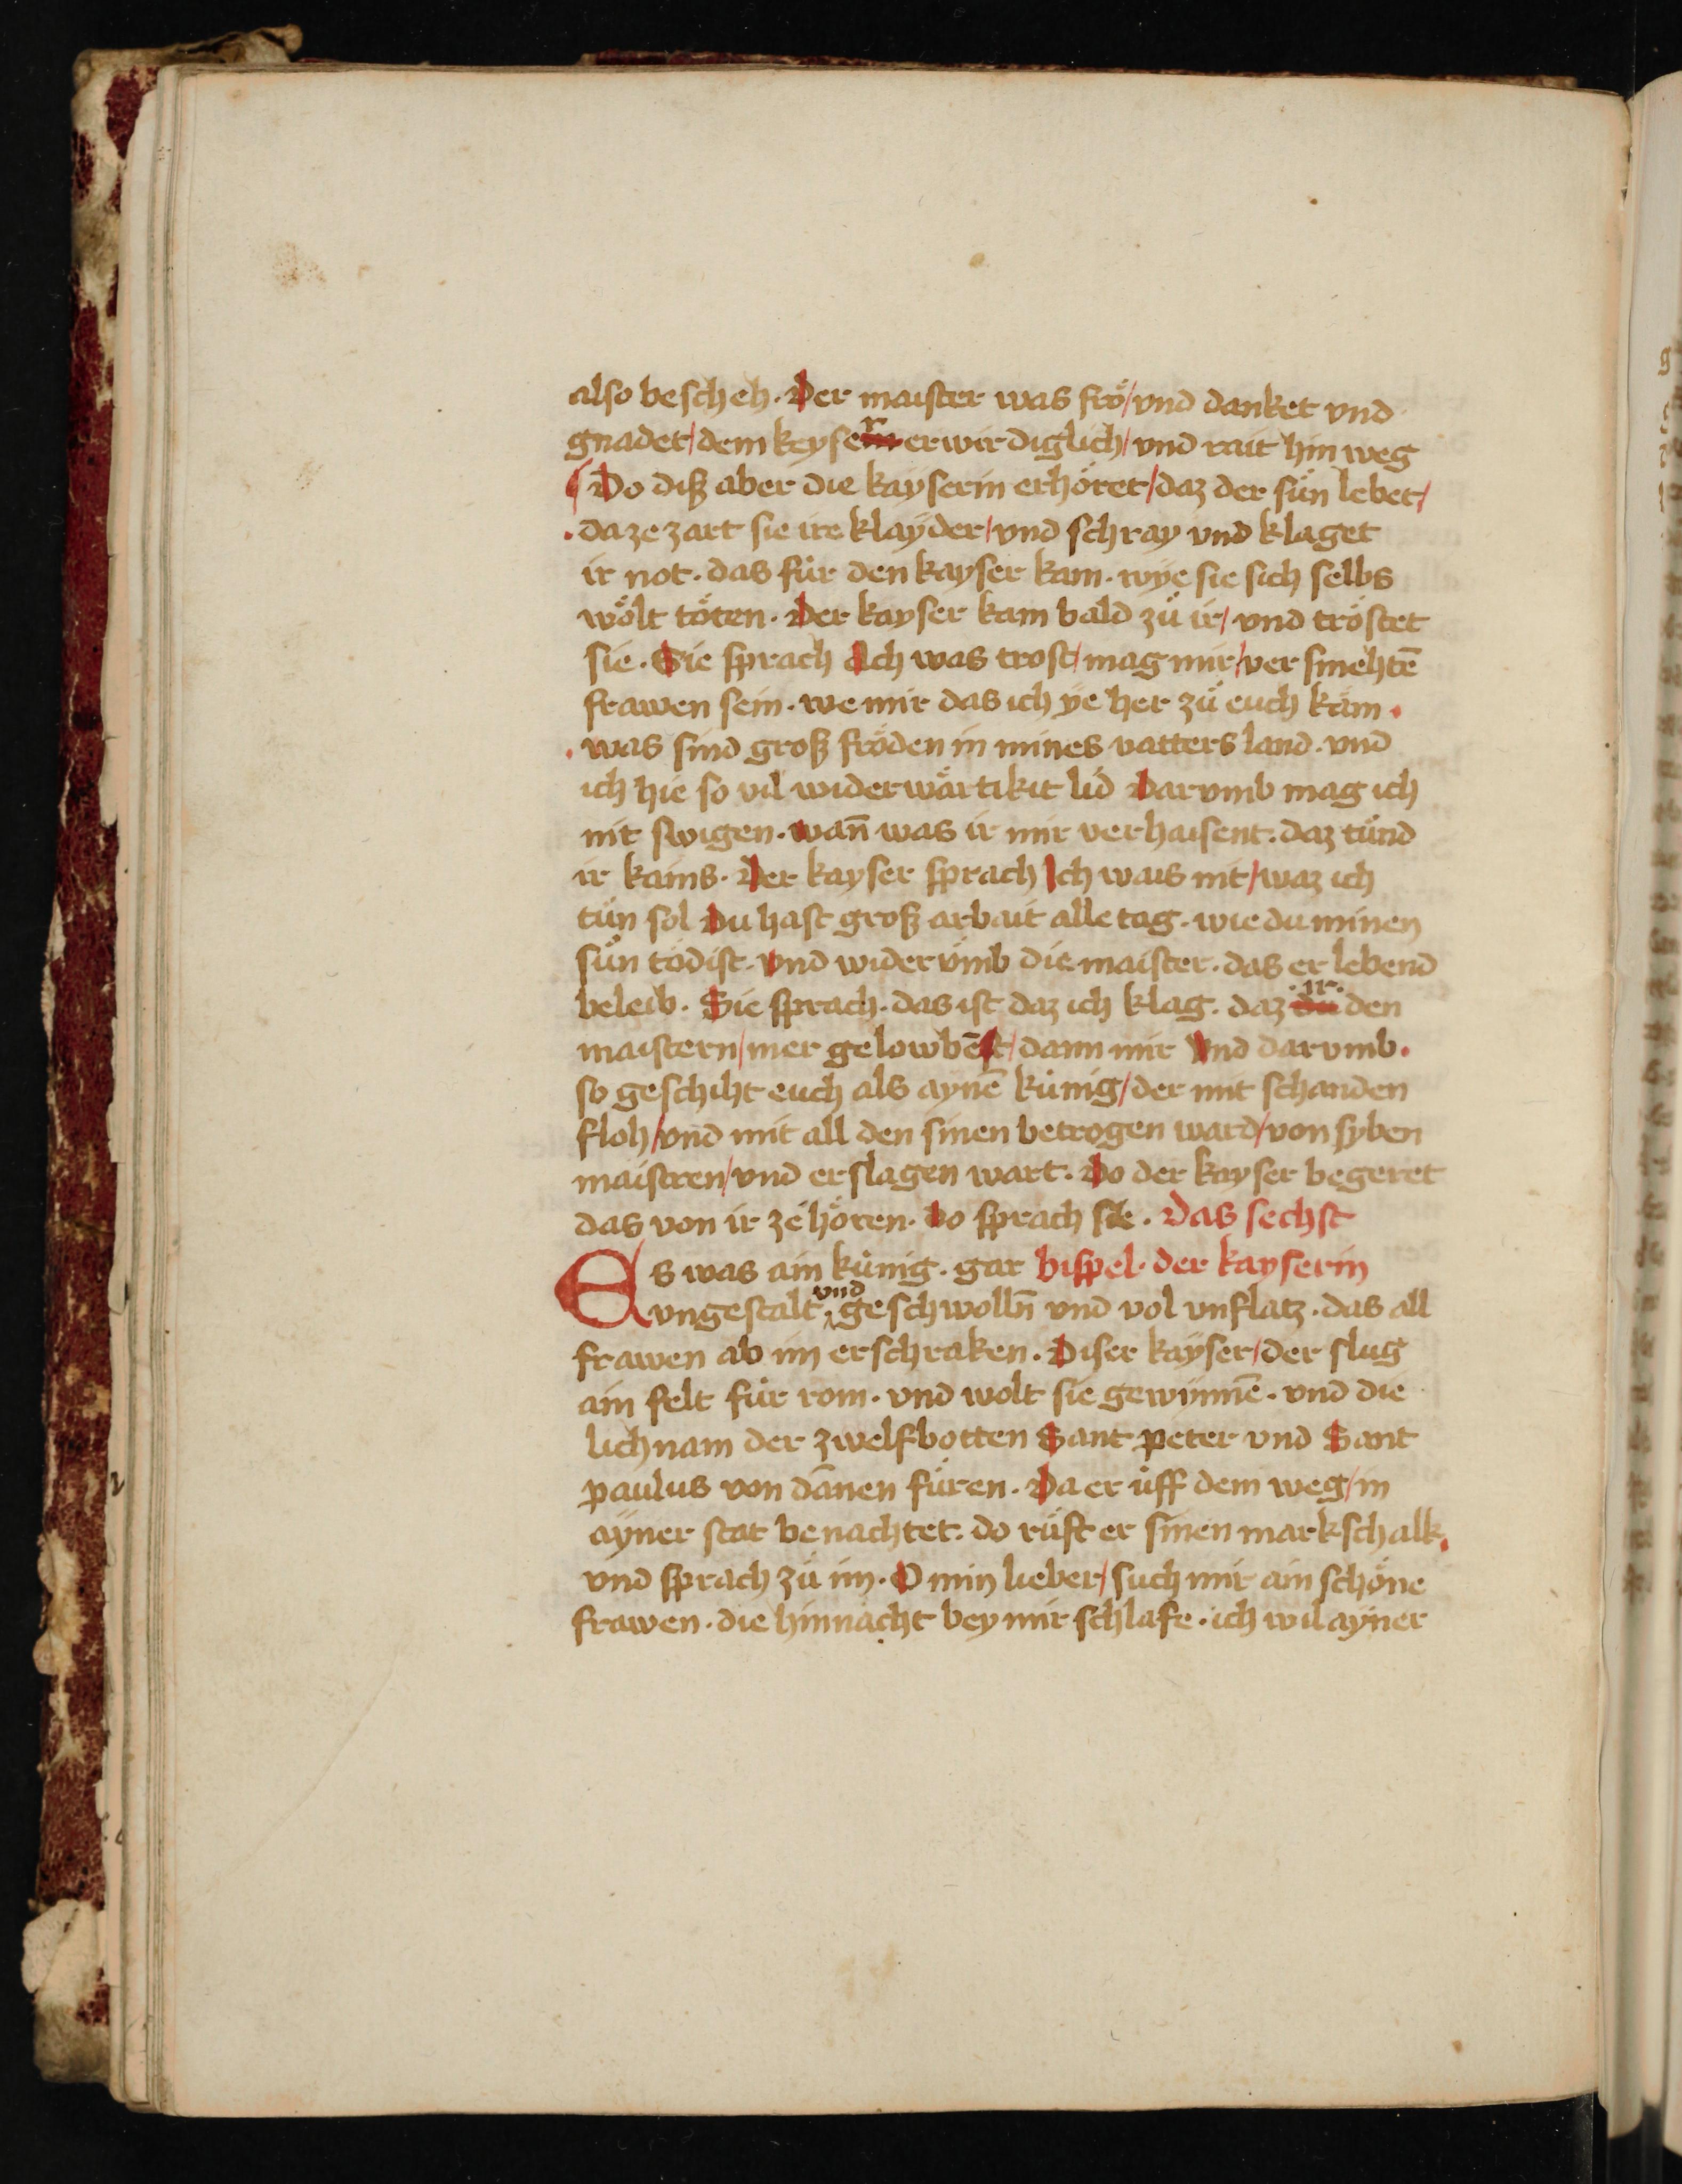 also bescheh. Der maister was frö/ vnd danket vnd
gnadet/ dem keyser erwirdiglich/ vnd rait hin weg
Do diß aber die kayserin erhöret/ daz der sün lebet/
. da ze zart sie ire klayder/ vnd schray vnd klaget
ir not. das für den kayser kam. wÿe sie sich selbs
wölt töten. Der kayser kam bald zü ir/ vnd tröstet
sie. Sie sprach Ach was trost/ mag mir/ ver smehtē
frawen sein. we mir das ich ÿe her zü euch kam.
. was sind groß fröden in mines vatters land. vnd
ich hie so vil widerwärtikit lid Darvmb mag ich
nit swigen. wan̄ was ir mir verhaisent. daz tünd
ir kains. Der kayser sprach Ich wais nit/ waz ich
tün sol Du hast groß arbait alle tag. wie du minen
sün tödist. vnd wider vmb die maister. das er lebend
beleib. Sie sprach. das ist daz ich klag. daz .ir. den
maistern/ mer gelowbēt/ dann mir Vnd darvmb.
so geschiht euch als aynē künig/ der mit schanden
floh/ vnd mit all den sinen betrogen ward/ von syben
maistren/ vnd erslagen wart. Do der kayser begeret
das von ir ze hören. Do sprach sie. Das sechst
Es was ain künig. gar bispel. der kayserin
vngestalt vnd geschwolln̄ vnd vol vnflatz. das all
frawen ab im erschraken. Diser kayser/ der slug
ain felt für rom. vnd wolt sie gewynnē. vnd die
lichnam der zwelfbotten Sant peter vnd Sant
paulus von dānen füren. Da er üff dem weg/ in
ayner stat benachtet. do rüft er sinen markschalk.
vnd sprach zü im. O min lieber/ such mir ain schöne
frawen. die hinnacht bey mir schlafe. ich wil ayner